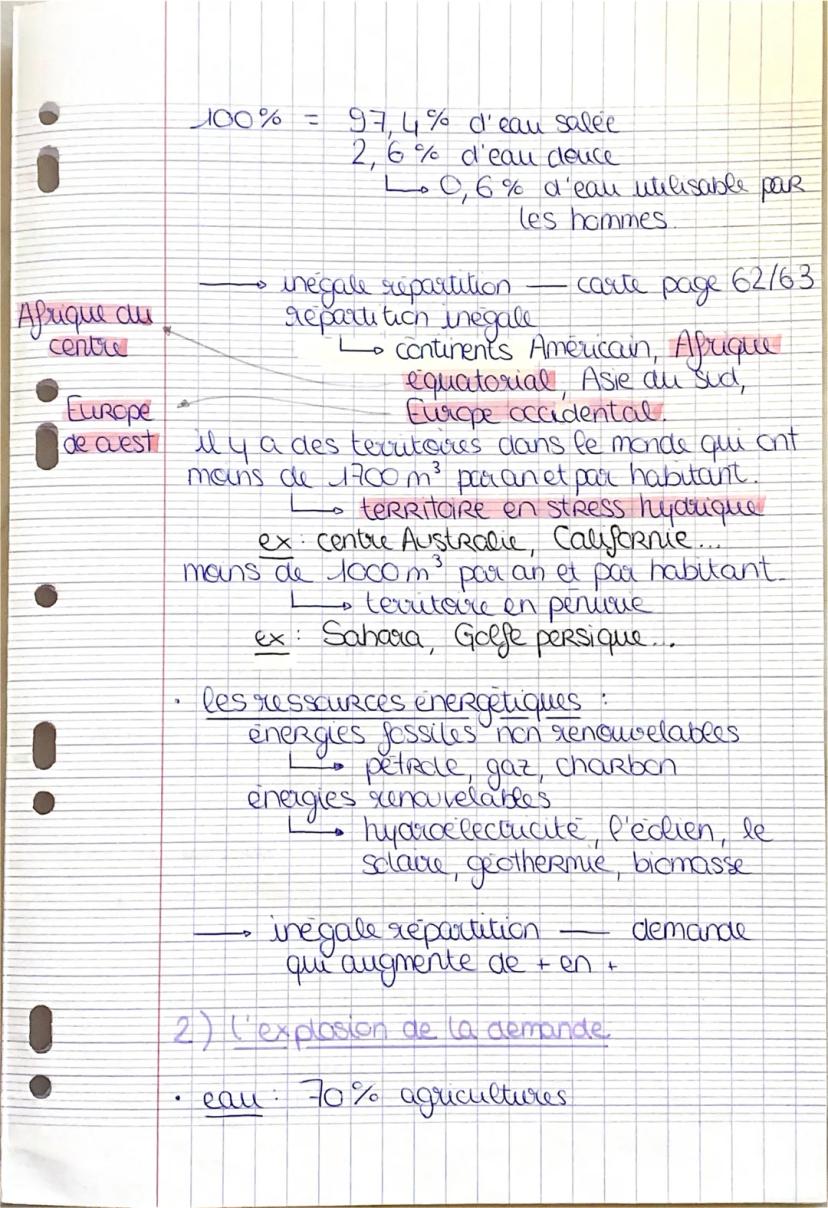 100% = 97,4% d'eau salée
2,6% d'eau douce
↳ 0,6% d'eau utilisable par
les hommes.
→ inégale répartition — carte page 62/63
répartition inégale
↳ continents Américain, Afrique
équatorial, Asie du Sud,
Europe occidental.
Afrique du
centre
Europe
de ouest
il y a des territoires dans le monde qui ont
moins de 1700 m³ par an et par habitant.
↳ territoire en stress hydrique
ex : centre Australie, Californie...
moins de 1000 m³ par an et par habitant.
↳ territoire en pénurie
ex : Sahara, Golfe persique...
• les ressources énergétiques :
énergies fossiles non renouvelables
↳ pétrole, gaz, charbon
énergies renouvelables
↳ hydroélectricité, l'éolien, le
solaire, géothermie, biomasse
→ inégale répartition — demande
qui augmente de + en +
2) l'explosion de la demande
• eau : 70% agricultures